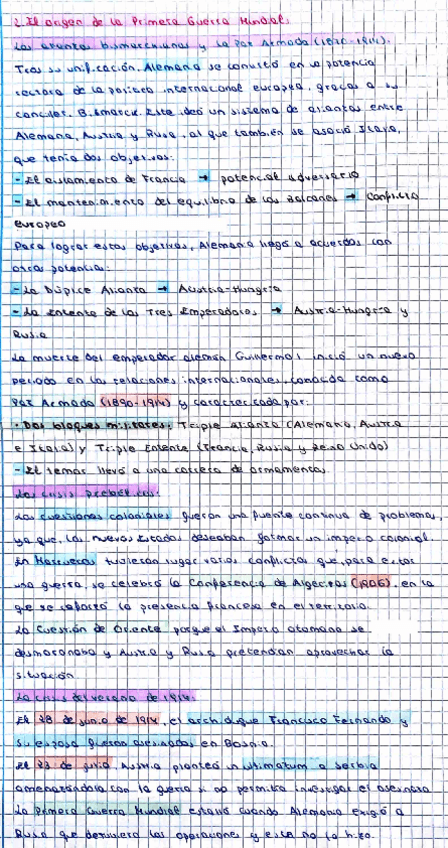 2. El origen de la Primera Guerra Mundial.
Las alianzas bismarckianas y la Paz Armada (1870-1914).
Tras su unificación, Alemania se convirtió en la potencia
rectora de la política internacional europea, gracias a su
canciller, Bismarck. Este ideó un sistema de alianzas entre
Alemania, Austria y Rusia, al que también se asoció Italia,
que tenía dos objetivos:
- El aislamiento de Francia → potencial adversario
- El mantenimiento del equilibrio de los Balcanes → conflicto
europeo
Para lograr estos objetivos, Alemania llegó a acuerdos con
otras potencias:
- La Dúplice Alianza → Austria-Hungría
- La Entente de los Tres Emperadores → Austria-Hungría y
Rusia
La muerte del emperador alemán Guillermo I inició un nuevo
periodo en las relaciones internacionales, conocida como
Paz Armada (1890-1914) y caracterizada por:
- Dos bloques militares: Triple alianza (Alemania, Austria
e Italia) y Triple Entente (Francia, Rusia y Reino Unido)
- El temor llevó a una carrera de armamentos.
Las crisis prebélicas.
Las cuestiones coloniales fueron una fuente continua de problemas,
ya que, los nuevos Estados deseaban formar un imperio colonial.
En Marruecos tuvieron lugar varios conflictos que, para evitar
una guerra, se celebró la Conferencia de Algeciras (1906), en la
que se reforzó la presencia francesa en el territorio.
La Cuestión de Oriente porque el Imperio otomano se
desmoronaba y Austria y Rusia pretendían aprovechar la
situación
La crisis del verano de 1914.
El 28 de junio de 1914, el archiduque Francisco Fernando y
su esposa fueron asesinados en Bosnia.
El 23 de julio, Austria planteó un ultimatum a Serbia
amenazándola con la guerra si no permitía investigar el asesinato
La Primera Guerra Mundial estalló cuando Alemania exigió a
Rusia que detuviera las operaciones y esta no lo hizo.